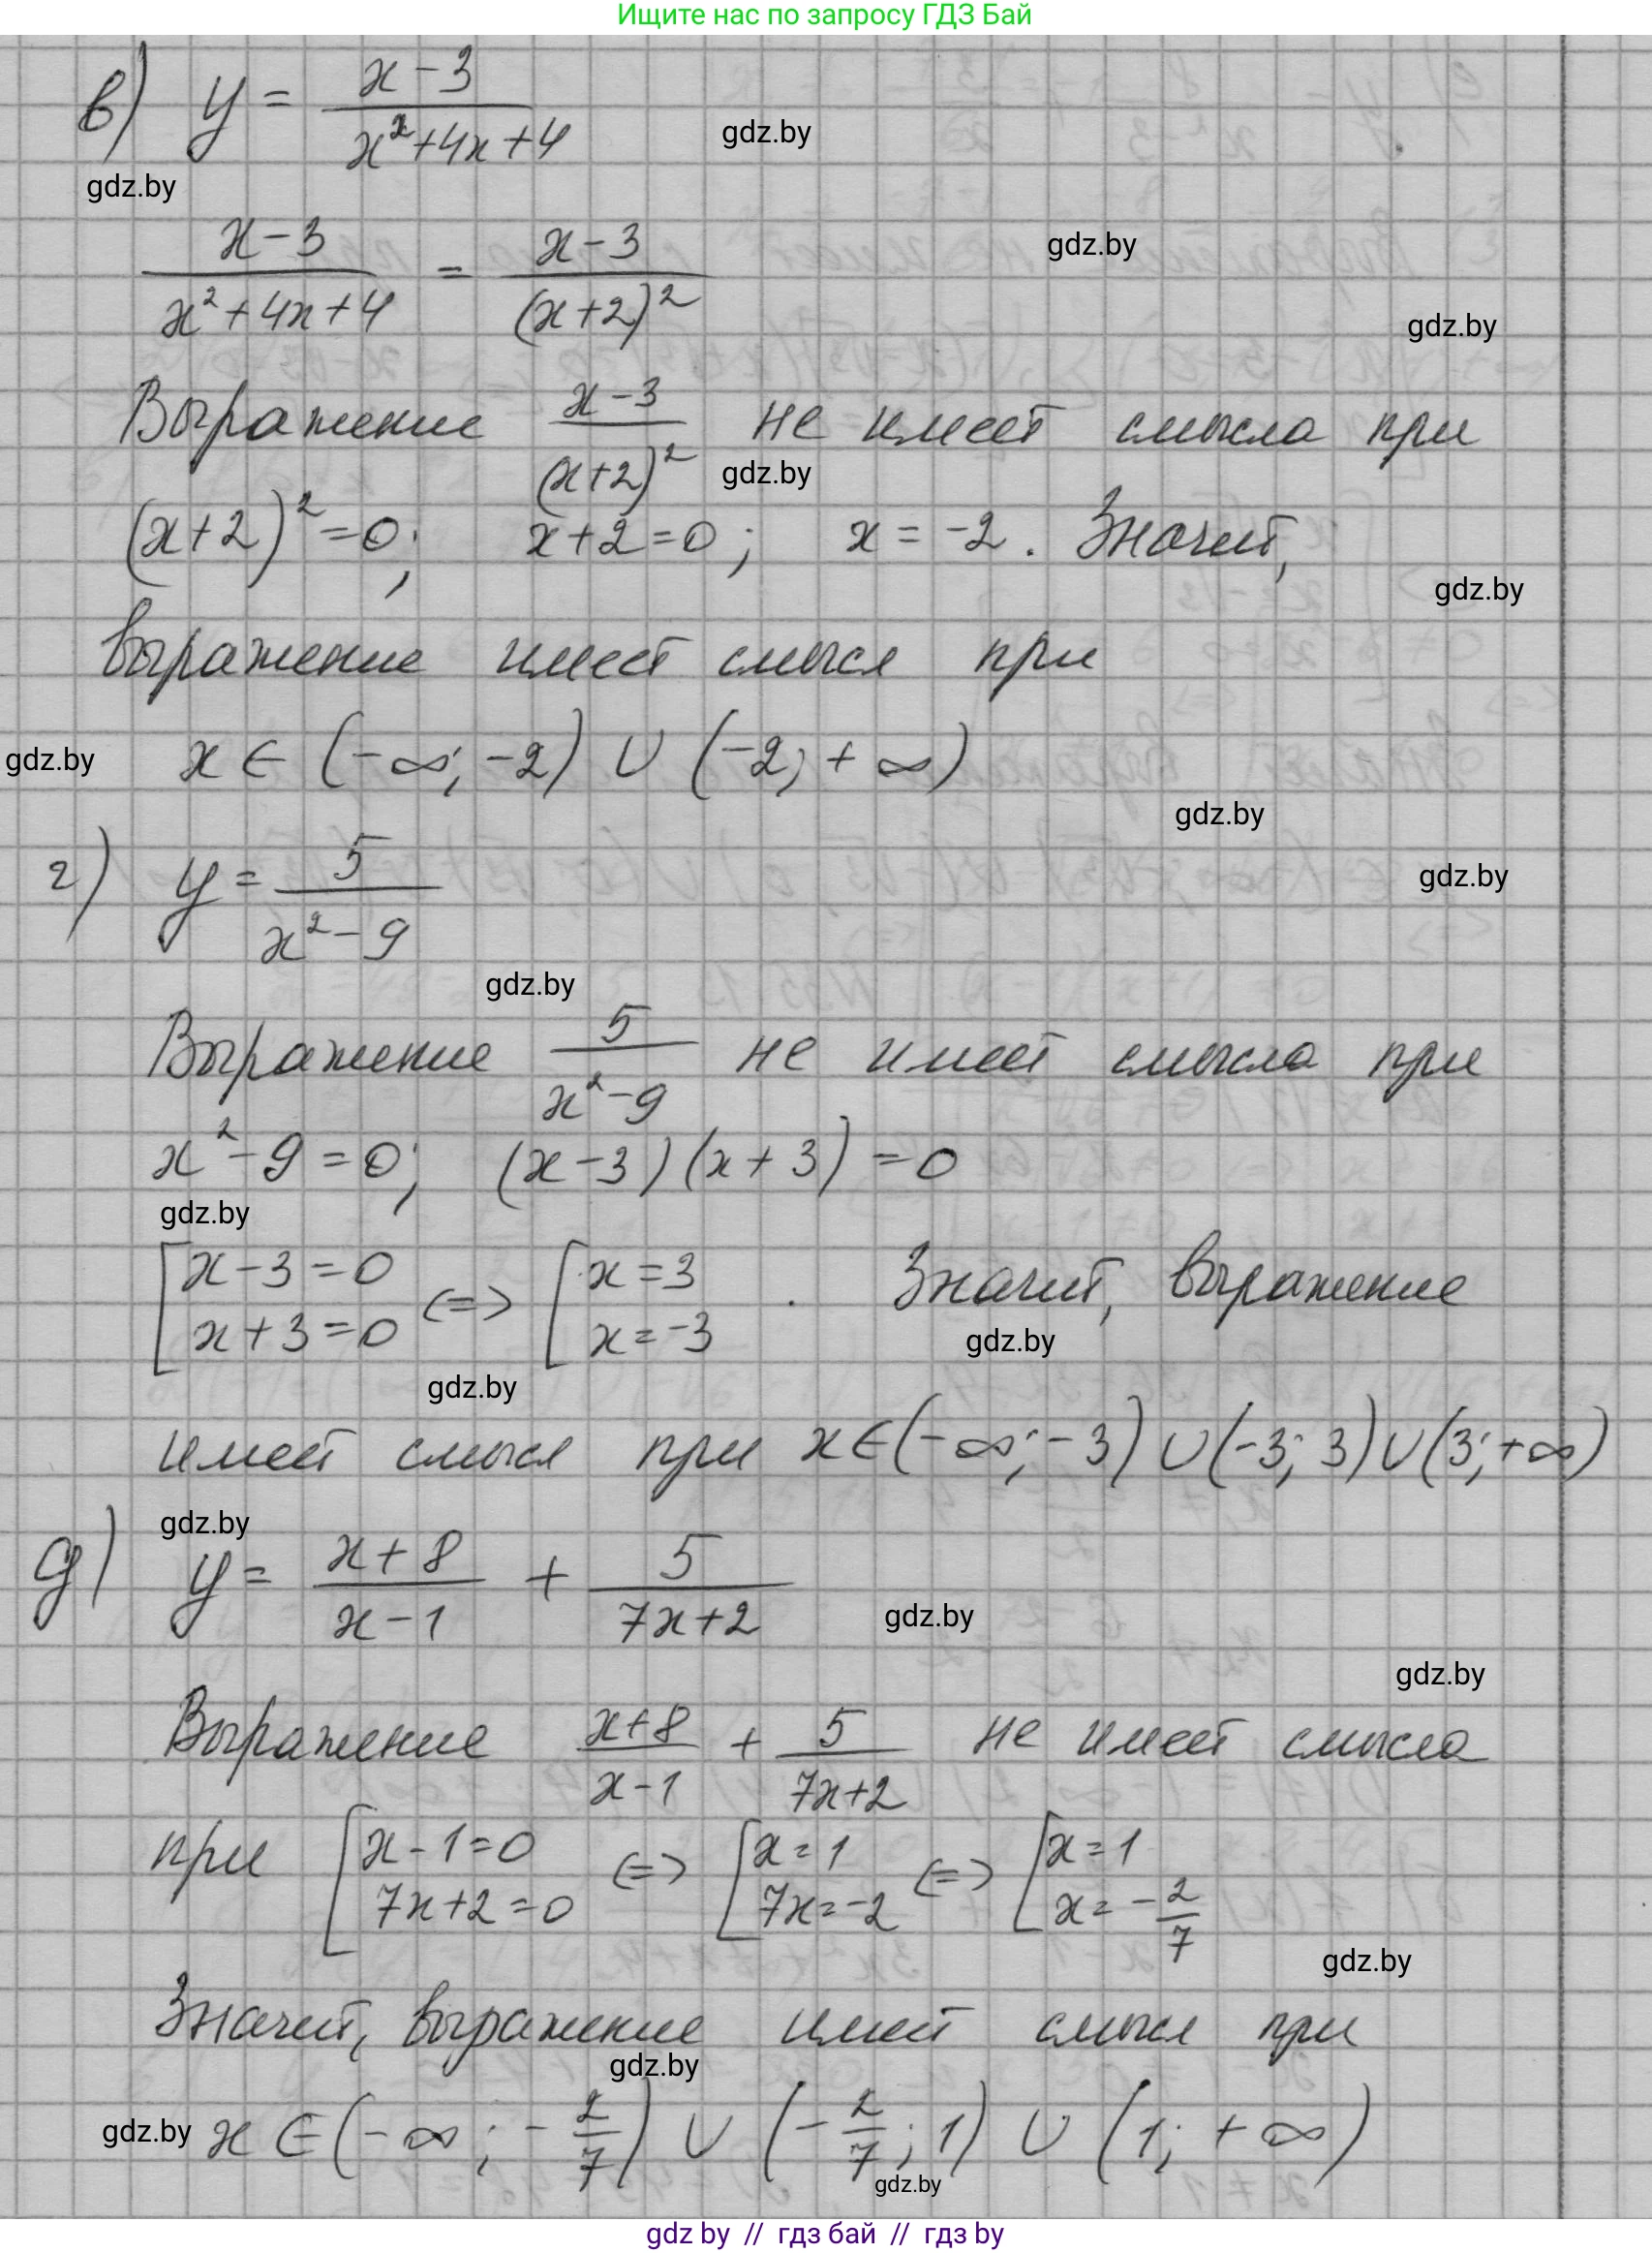 Ищите нас по запросу ГДЗ Бай
в) y = (x-3)/(x²+4x+4)
gdz.by
gdz.by
(x-3)/(x²+4x+4) = (x-3)/(x+2)²
gdz.by
gdz.by
Выражение (x-3)/(x+2)² не имеет смысла при
gdz.by
(x+2)²=0; x+2=0; x=-2. Значит,
gdz.by
выражение имеет смысл при
gdz.by
x∈(-∞;-2)∪(-2;+∞)
gdz.by
г) y=5/(x²-9)
gdz.by
gdz.by
Выражение 5/(x²-9) не имеет смысла при
x²-9=0; (x-3)(x+3)=0
gdz.by
[x-3=0 <=> [x=3 . Значит, выражение
x+3=0 x=-3
gdz.by
gdz.by
имеет смысл при x∈(-∞;-3)∪(-3;3)∪(3;+∞)
gdz.by
д) y= (x+8)/(x-1) + 5/(7x+2)
gdz.by
gdz.by
Выражение (x+8)/(x-1) + 5/(7x+2) не имеет смысла
при [x-1=0 <=> [x=1 <=> [x=1
7x+2=0 7x=-2 x=-2/7
gdz.by
Значит, выражение имеет смысл при
gdz.by
gdz.by
x∈(-∞;-2/7)∪(-2/7;1)∪(1;+∞)
gdz.by
gdz by // гдз бай // гдз by